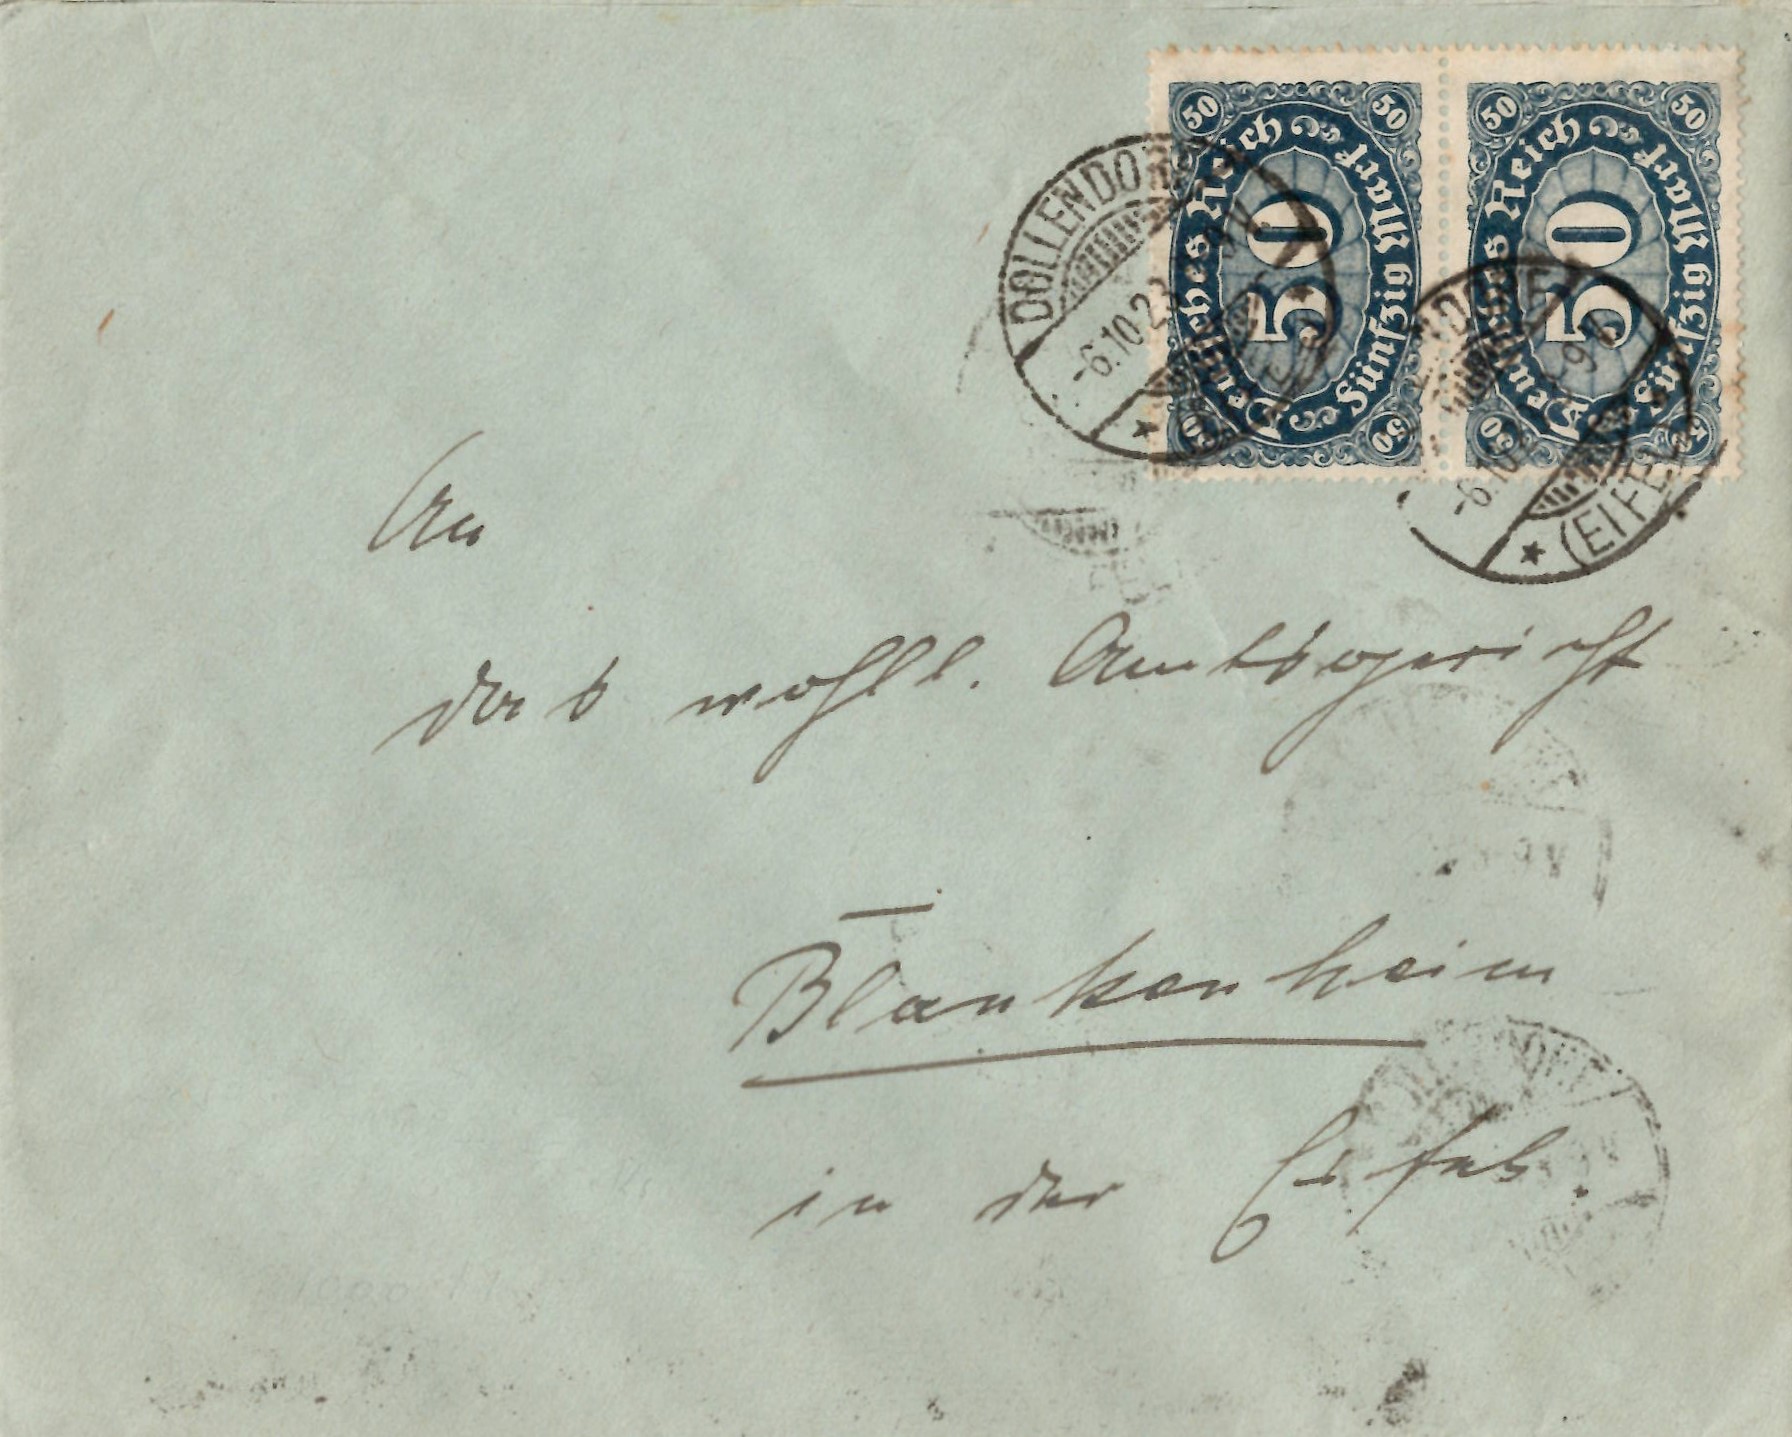 50 50
Deutsches Reich
Fünfzig Mark
50
50 50
50 50
Deutsches Reich
Fünfzig Mark
50
50
DOLLENDORF
-6.10.23
DORF
-6.10
9
(EIFEL
An
das wohll. Amtsgericht
Blankenheim
in der Eifel.